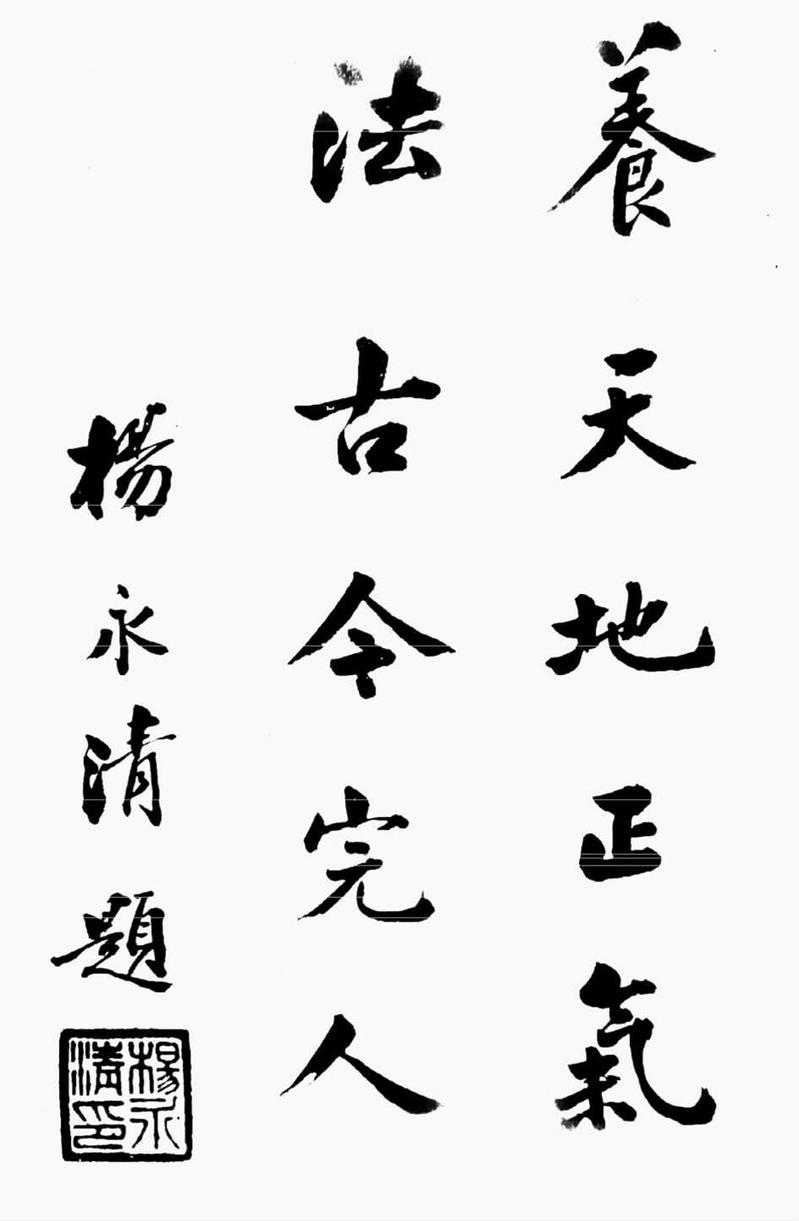 養天地正氣
法古今完人
楊永清題
楊永
清印